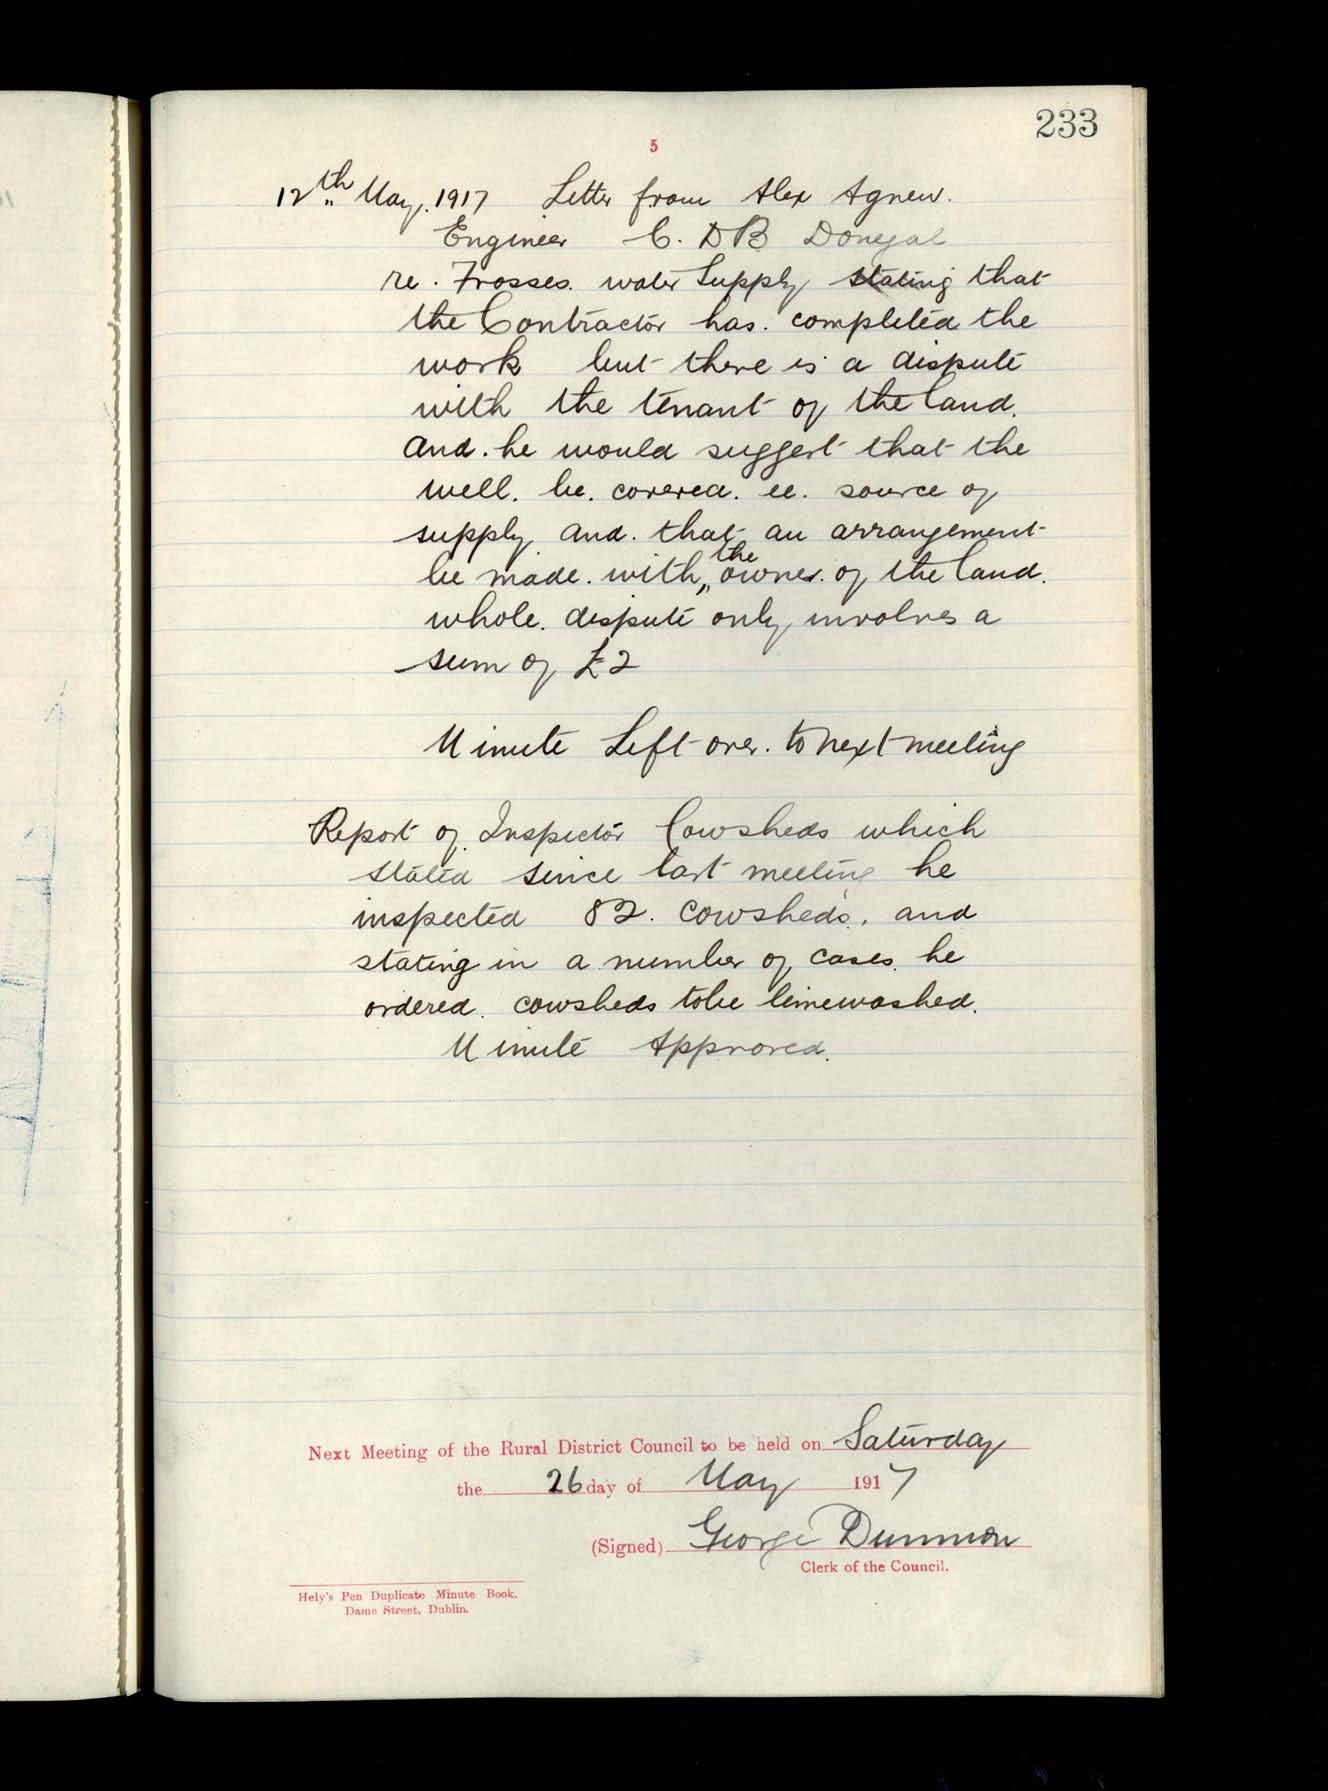 233
5
12th May. 1917 Letter from Alex Agnew.
Engineer C. D B Donegal
re. Frosses. water Supply stating that
the Contractor has. completed the
work but there is a dispute
with the tenant of the land.
and. he would suggest that the
well. be. covered. ie. source of
supply and. that an arrangement
be made. with the owner. of the land.
whole. dispute only involves a
sum of £2
Minute Left over. to next meeting
Report of Inspector Cowsheds which
stated since last meeting he
inspected 82. cowsheds. and
stating in a number of cases he
ordered. cowsheds to be limewashed.
Minute Approved.
Next Meeting of the Rural District Council to be held on Saturday
the 26 day of May 1917
(Signed) George Dunnion
Clerk of the Council.
Hely's Pen Duplicate Minute Book.
Dame Street, Dublin.